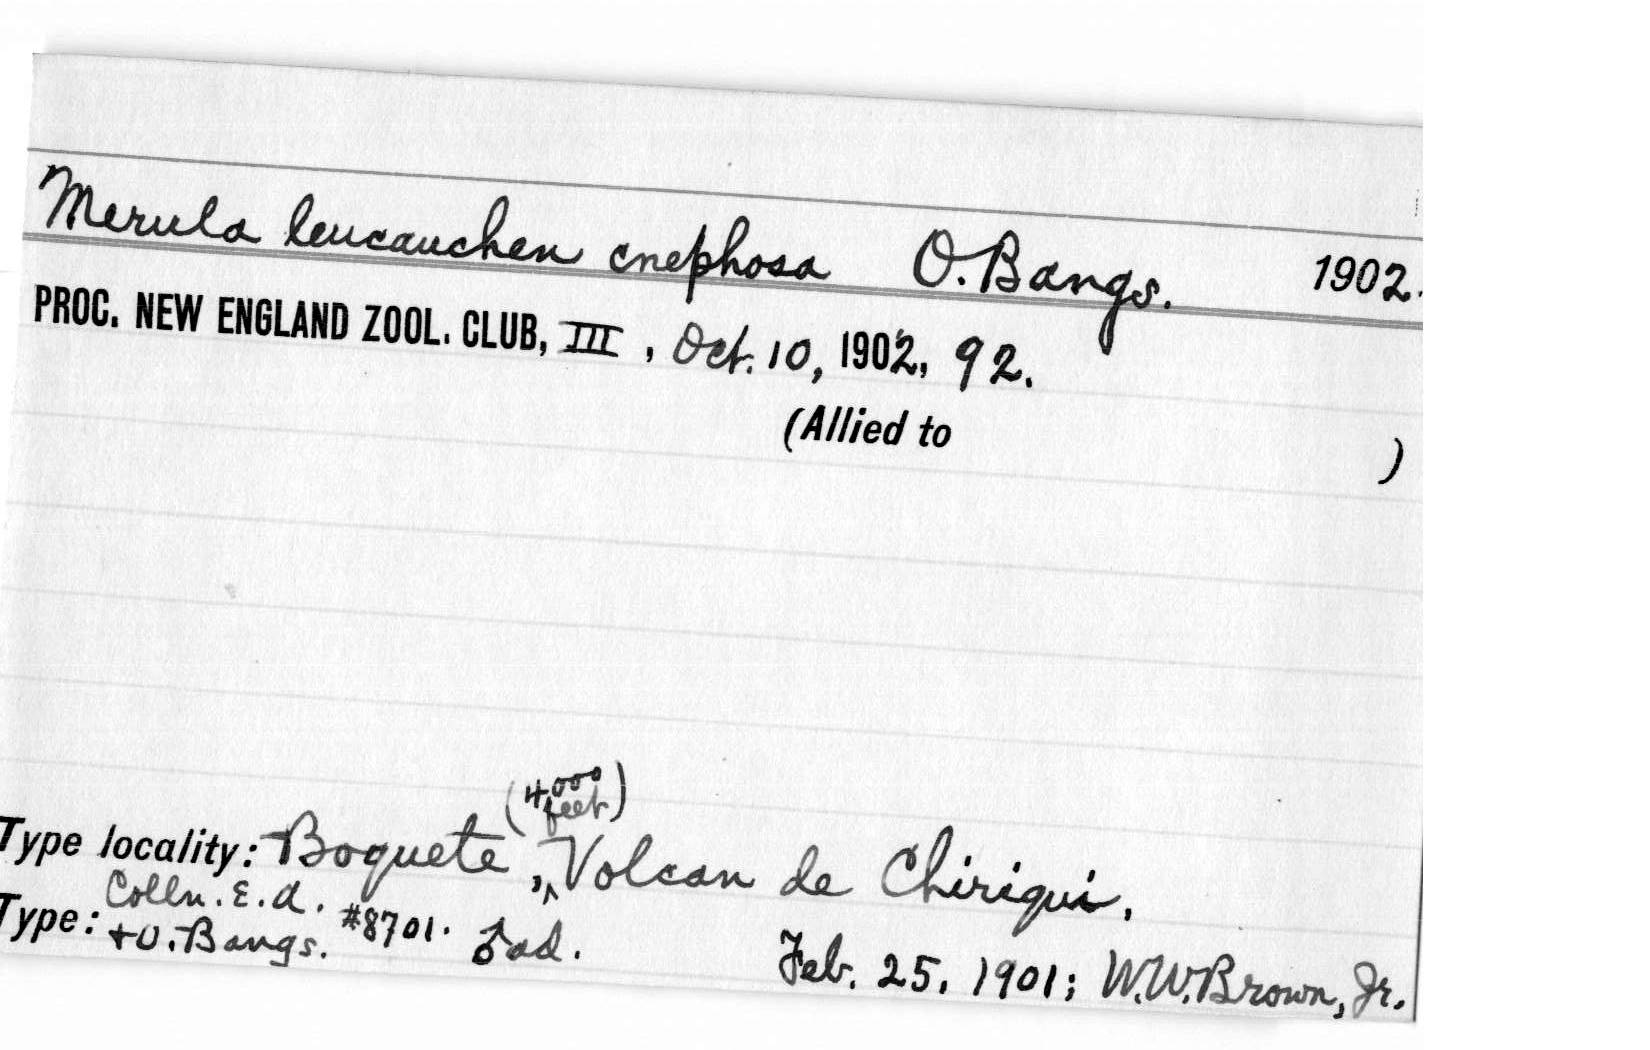 Merula leucauchen cnephosa O. Bangs. 1902.
PROC. NEW ENGLAND ZOOL. CLUB, III, Oct. 10, 1902, 92.
(Allied to )
(4000 feet)
Type locality: Boquete, ^ Volcan de Chiriqui,
Colln. E. A.
Type: + O. Bangs. #8701. ♂ ad. Feb. 25, 1901; W.W. Brown, Jr.